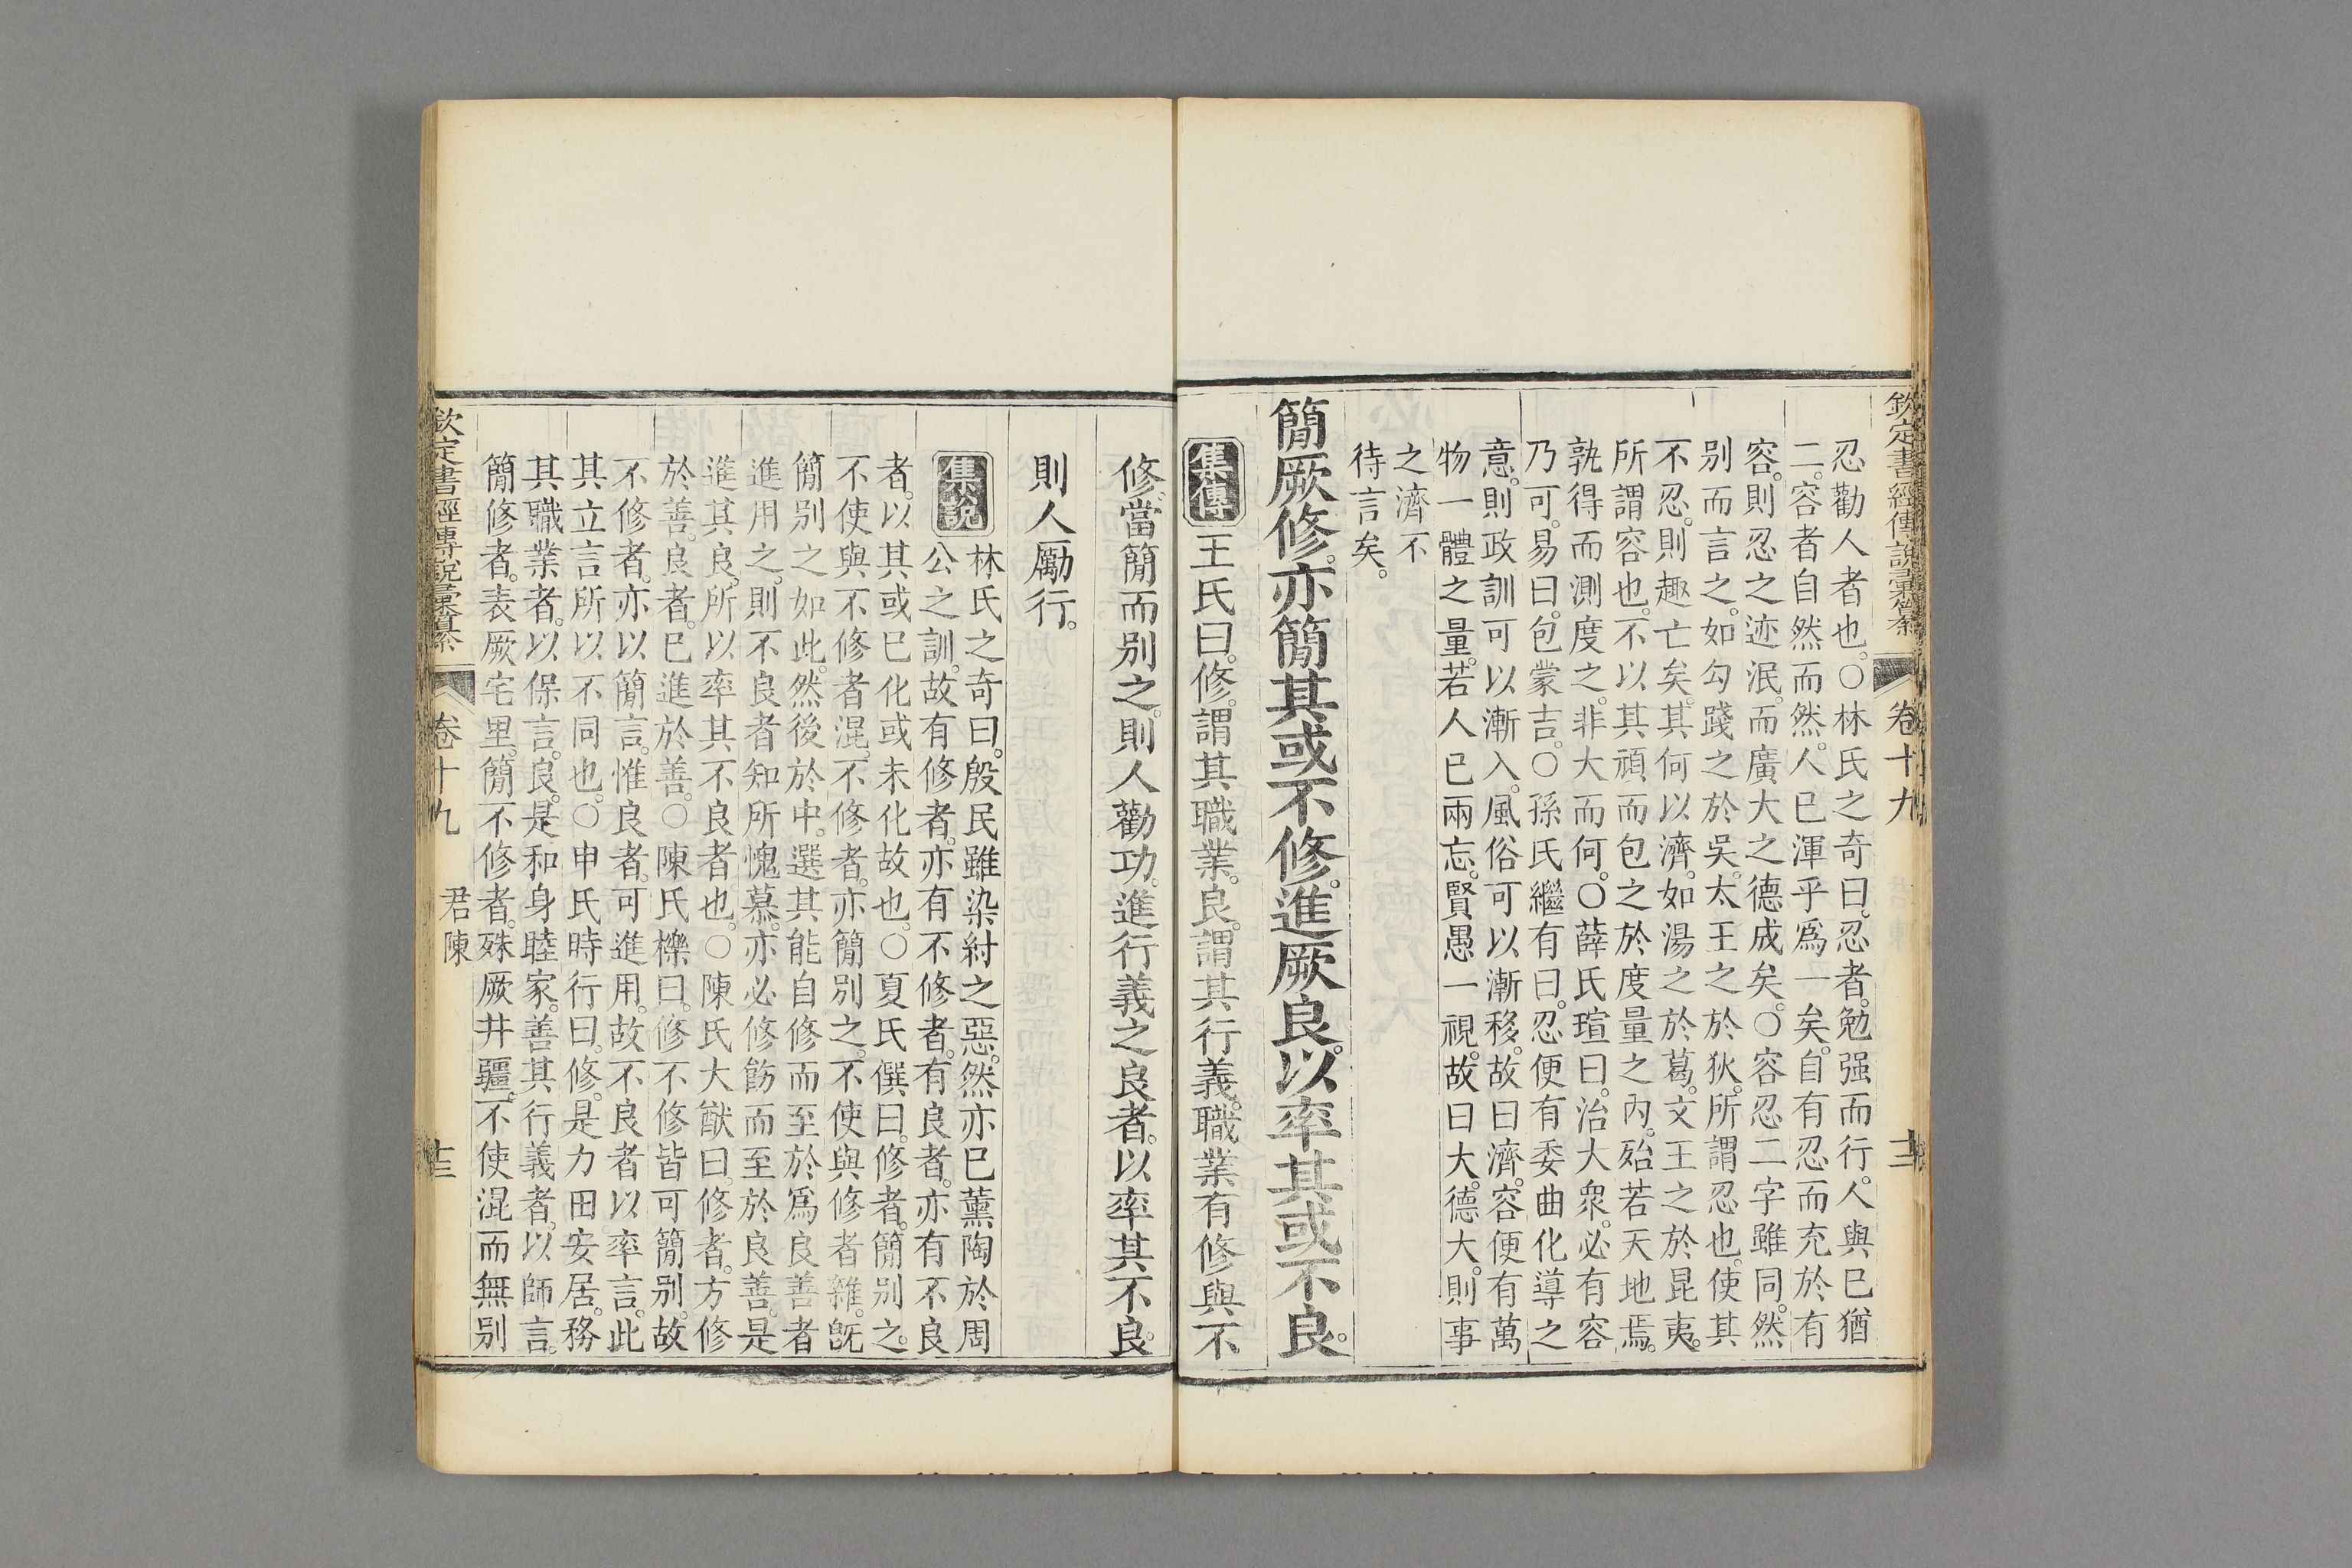 欽定書經傳說彙纂 卷十九 十二
忍勸人者也。○林氏之奇曰。忍者。勉强而行。人與已猶
二。容者自然而然。人已渾乎爲一矣。自有忍而充於有
容。則忍之迹泯。而廣大之德成矣。○容忍二字雖同。然
别而言之。如勾踐之於吳。太王之於狄。所謂忍也。使其
不忍。則趣亡矣。其何以濟。如湯之於葛。文王之於昆夷。
所謂容也。不以其頑而包之於度量之內。殆若天地焉。
孰得而測度之。非大而何。○薛氏瑄曰。治大衆。必有容
乃可。易曰。包蒙吉。○孫氏繼有曰。忍便有委曲化導之
意。則政訓可以漸入。風俗可以漸移。故曰濟。容便有萬
物一體之量。若人已兩忘。賢愚一視。故曰大。德大。則事
之濟不
待言矣。
簡厥修。亦簡其或不修。進厥良。以率其或不良。
集傳 王氏曰。修。謂其職業。良。謂其行義。職業有修與不
修。當簡而別之。則人勸功。進行義之良者。以率其不良。
則人勵行。
集說 林氏之奇曰。殷民雖染紂之惡。然亦已薰陶於周
公之訓。故有修者。亦有不修者。有良者。亦有不良
者。以其或已化或未化故也。○夏氏僎曰。修者。簡別之。
不使與不修者混。不修者。亦簡別之。不使與修者雜。既
簡別之如此。然後於中。選其能自修而至於爲良善者
進用之。則不良者知所愧慕。亦必修飭而至於良善。是
進其良。所以率其不良者也。○陳氏大猷曰。修者。方修
於善。良者。已進於善。○陳氏櫟曰。修不修皆可簡別。故
不修者。亦以簡言。惟良者。可進用。故不良者以率言。此
其立言所以不同也。○申氏時行曰。修。是力田安居。務
其職業者。以保言。良。是和身睦家。善其行義者。以師言。
簡修者。表厥宅里。簡不修者。殊厥井疆。不使混而無别
欽定書經傳說彙纂 卷十九 君陳 十三